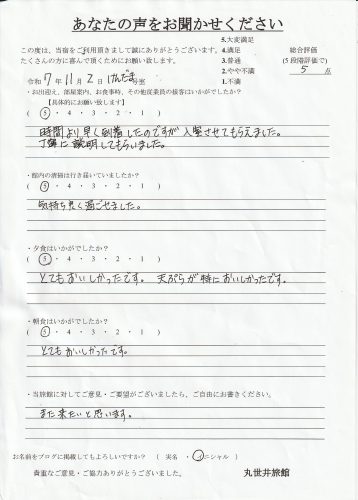 あなたの声をお聞かせください
この度は、当宿をご利用頂きまして誠にありがとうございます。
たくさんの方に喜んで頂くためにお願い致します。
5.大変満足
4.満足
3.普通
2.やや不満
1.不満
総合評価
(5段階評価で)
5 点
令和 7 年 11 月 2 日 けんだま号室
・お出迎え、部屋案内、お食事時、その他従業員の接客はいかがでしたか?
【具体的にお願い致します】
( 5 ・ 4 ・ 3 ・ 2 ・ 1 )
時間より早く到着したのですが入室させてもらえました。
丁寧に説明してもらいました。
・館内の清掃は行き届いていましたか?
( 5 ・ 4 ・ 3 ・ 2 ・ 1 )
気持ち良く過ごせました。
・夕食はいかがでしたか?
( 5 ・ 4 ・ 3 ・ 2 ・ 1 )
とてもおいしかったです。 天ぷらが特においしかったです。
・朝食はいかがでしたか?
( 5 ・ 4 ・ 3 ・ 2 ・ 1 )
とてもおいしかったです。
・当旅館に対してご意見・ご要望がございましたら、ご自由にお書きください。
また来たいと思います。
お名前をブログに掲載してもよろしいですか? ( 実名 ・ イニシャル )
貴重なご意見・ご協力ありがとうございました。
丸世井旅館